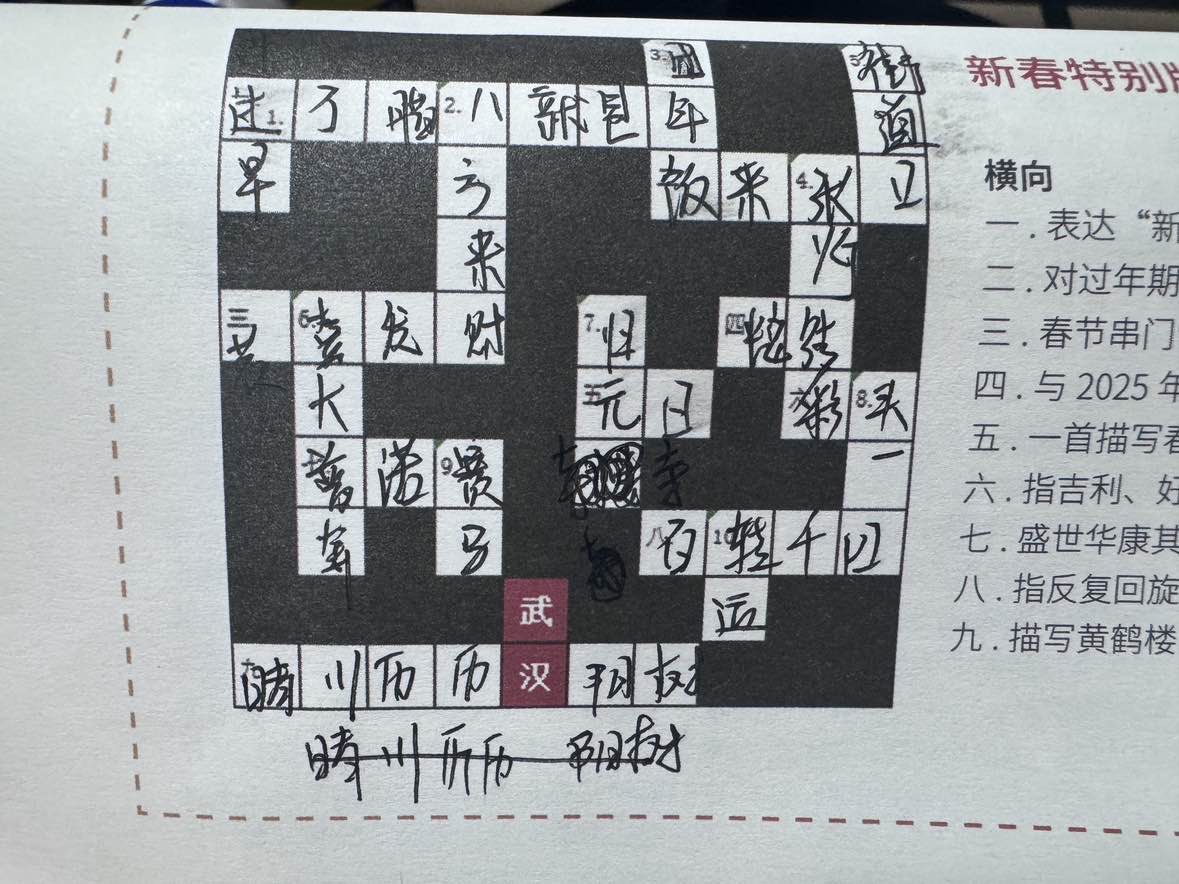 3. 团 5. 街
新春特别
过 1. 了 腊 2. 八 就 是 年 道
横向
早 方 饭 来 4. 张 口
一 . 表达 “新
来 灯
二 . 对过年期
三 6. 发 财 7. 归 四
三 . 春节串门
大 五 元 日 六 彩 8. 头
四 . 与 2025 年
9. 贺 一
五 . 一首描写春
六 . 指吉利、好
年 马 八 百 10. 转 千 回
七 . 盛世华康其
武 运
八 . 指反复回旋
九 . 描写黄鹤楼
晴 川 历 历 汉 阳 树
晴川历历 阳树